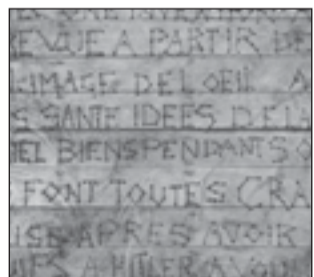 REVUE A PARTIR DE
IMAGE DE L OEIL A
SANTE IDEES DELA
IEL BIENSPENDANTS O
FONT TOUTES CRA
USE APRES AVOIR
A HITLER AVOI